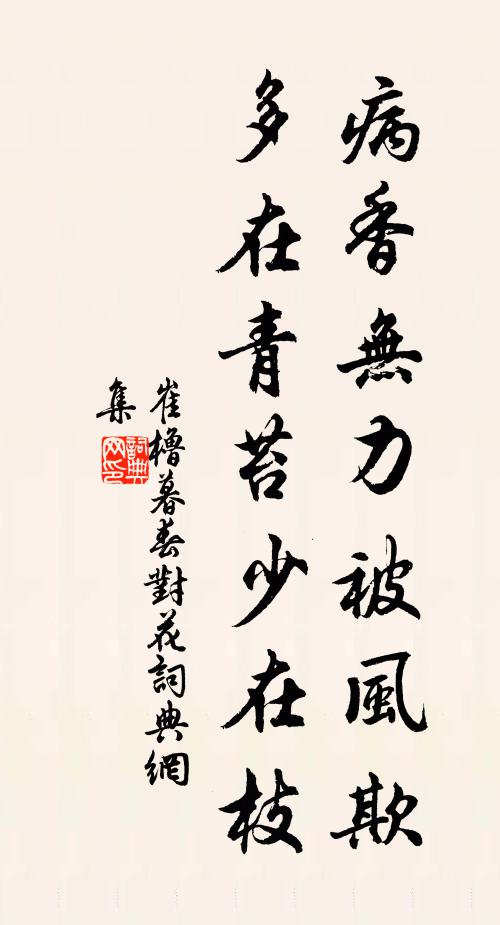 病香無力被風欺
多在青苔少在枝
崔櫓暮春對花詞典網
集
詞典
网印